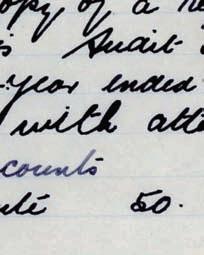 opy of a
Audit
year ended
with
counts
50.